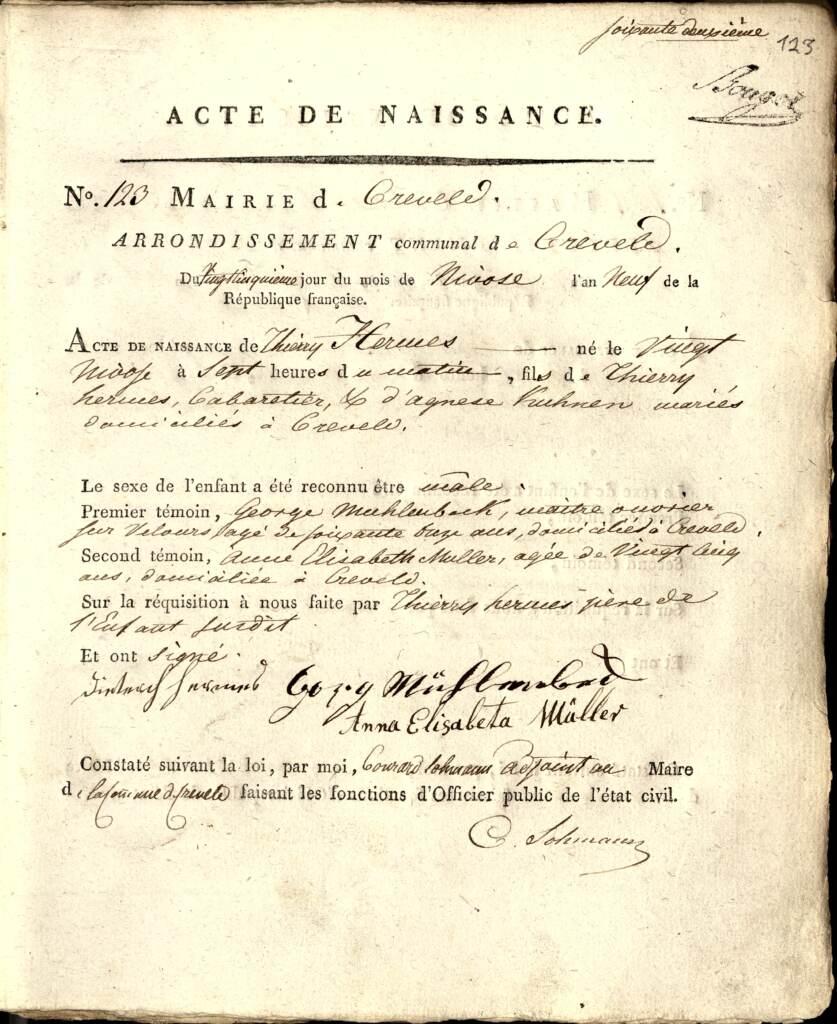 soixante deuxième
123
Bouget
ACTE DE NAISSANCE.
No. 123 MAIRIE d. Creveld.
ARRONDISSEMENT communal de Creveld.
Du Vingtcinquième jour du mois de Nivose l'an Neuf de la
République française.
ACTE DE NAISSANCE de Thierry Hermes né le Vingt
Nivose à Sept heures du matin, fils de Thierry
hermes, Cabaretier, & d'agnese Kuhnen mariés
domiciliés à Creveld.
Le sexe de l'enfant a été reconnu être mâle.
Premier témoin, George Muhlenbeck, maitre ouvrier
sur Velours agé de soixante onze ans, domicilié à Creveld.
Second témoin, Anne Elisabeth Muller, agée de Vingt Cinq
ans, domiciliée à Creveld.
Sur la réquisition à nous faite par Thierry hermes père de
l'Enfant susdit
Et ont signé.
Dieterich hermes Georg Mühlenbeck
Anna Elisabeta Müller
Constaté suivant la loi, par moi, Conrard Sohmann Adjoint au Maire
de la Commune de Creveld faisant les fonctions d'Officier public de l'état civil.
C. Sohmann